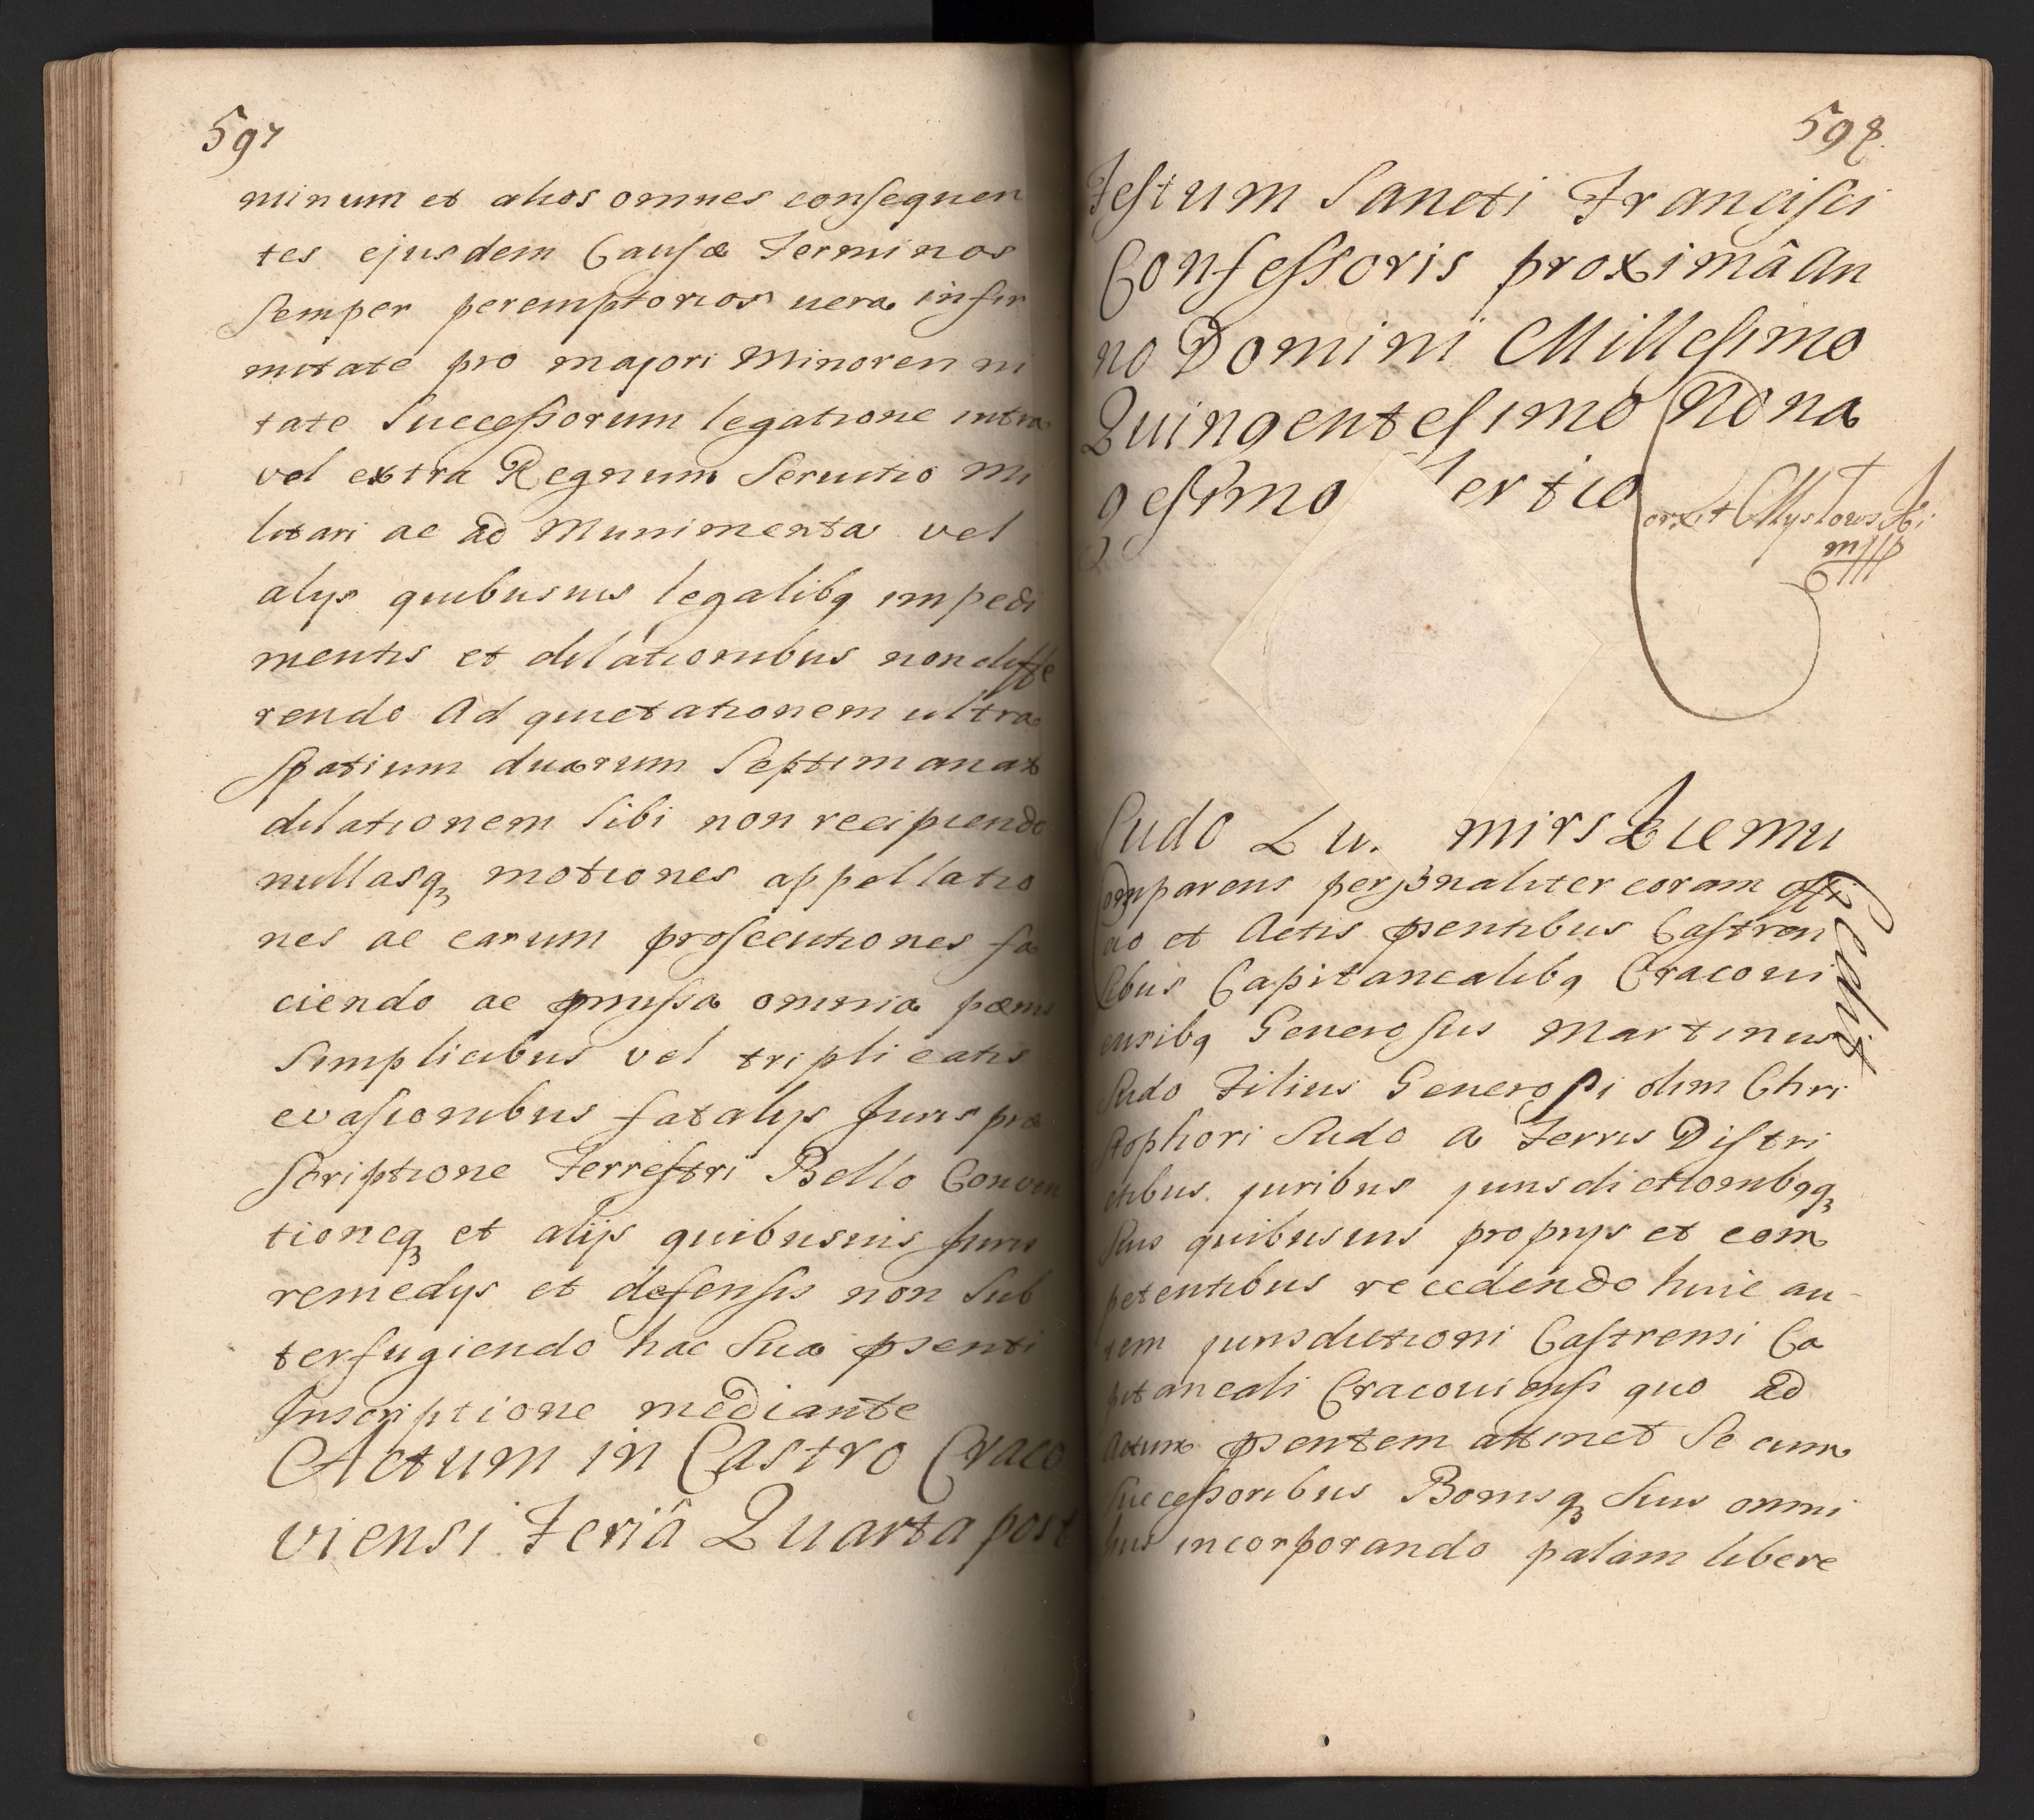 597
minum et alios omnes consequen
tes ejusdem Causæ Terminos
Semper peremptorios vera infir
mitate pro majori Minorenni
tate Successorum legatione intra
vel extra Regnum Servitio Mi
litari ac ad Munimenta vel
alys quibusvis legalibq impedi
mentis et dilationibus non diffe
rendo Ad quietationem ultra
Spatium duarum Septimanar
dilationem Sibi non recipiendo
nullasq motiones appellatio
nes ac earum prosecutiones fa
ciendo ac pmissa omnia pænis
Simplicibus vel triplicatis
evasionibus fatalys Juris præ
scriptione Terrestri Bello Conven
tioneq et alijs quibusvis Juris
remedys et defensis non Sub
terfugiendo hac Sua psenti
Inscriptione mediante
Actum in Castro Craco
viensi Feriâ Quarta post
598
Festum Sancti Francisci
Confessoris proximâ An
no Domini Millesimo
Quingentesimo Nona
gesimo Tertio
Sudo Zu. mirskiemu
Comparens personaliter coram offi
cio et Actis psentibus Castren
sibus Capitanealibq Cracovi
ensibq Generosus Martinus
Sudo Filius Generosi olim Chri
stophori Sudo a Terris Distri
ctibus juribus jurisdictionibqq
Suis quibusvis proprys et com
petentibus recedendo huic au-
tem jurisdictioni Castrensi Ca
pitaneali Cracoviensi quo ad
Actum psentem attinet Se cum
Successoribus Bonisq Suis omni
bus incorporando palam libere
Cedit